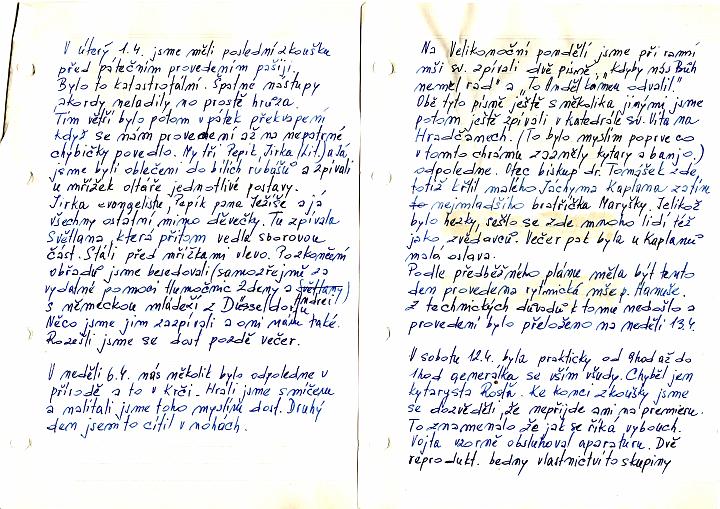 V úterý 1.4. jsme měli poslední zkoušku
před pátečním provedením pašijí.
Bylo to katastrofální. Špatné nástupy
akordy neladily no prostě hrůza.
Tím větší bylo potom v pátek překvapení
když se nám provedení až na nepatrné
chybičky povedlo. My tři Pepík, Jirka (Lit.) a Já
jsme byli oblečeni do bílích rubášů a zpívali
u mřížek oltáře jednotlivé postavy.
Jirka evangelistu, Pepík pana Ježíše a já
všechny ostatní mimo děvečky. Tu zpívala
Světlana, která přitom vedla sborovou
část. Stáli před mřížkami vlevo. Po skončení
obřadů jsme besedovali (samozřejmě za
vydatné pomoci tlumočnic Zdeny a Světlany)
Andrei
s německou mládeží z Düsseldorfu
Něco jsme jim zazpívali a oni nám také.
Rozešli jsme se dost pozdě večer.
V neděli 6.4. nás několik bylo odpoledne v
přírodě a to v Krči. Hráli jsme s míčem
a nalítali jsme toho myslím dost. Druhý
den jsem to cítil v nohách.
Na Velikonoční pondělí jsme při ranní
mši sv. zpívali dvě písně, "Kdyby nás Bůh
neměl rád" a "To Anděl kámen odvalil."
Obě tyto písně ještě s několika jinými jsme
potom ještě zpívali v katedrále sv. Víta na
Hradčanech. (To bylo myslím poprve co
v tomto chrámu zazněly kytary a banjo.)
odpoledne. Otec biskup dr. Tomášek zde
totiž křtil malého Jáchyma Kaplana zatím
nejmladšího bratříčka Maryšky. Jelikož
bylo hezky, sešlo se zde mnoho lidí též
jako zvědavců. Večer pak byla u Kaplanů
malá oslava.
Podle předběžného plánu měla být tento
den provedena rytmická mše p. Hanuše.
Z technických důvodů k tomu nedošlo a
provedení bylo přeloženo na neděli 13.4.
V sobotu 12.4. byla prakticky od 9hod až do
1hod generálka se vším všudy. Chyběl jen
kytarysta Rosťa. Ke konci zkoušky jsme
se dozvěděli, že nepřijde ani na premieru.
To znamenalo že jak se říká výbouch.
Vojta vzorně obsluhoval aparaturu. Dvě
reprodukt. bedny vlastnictví to skupiny